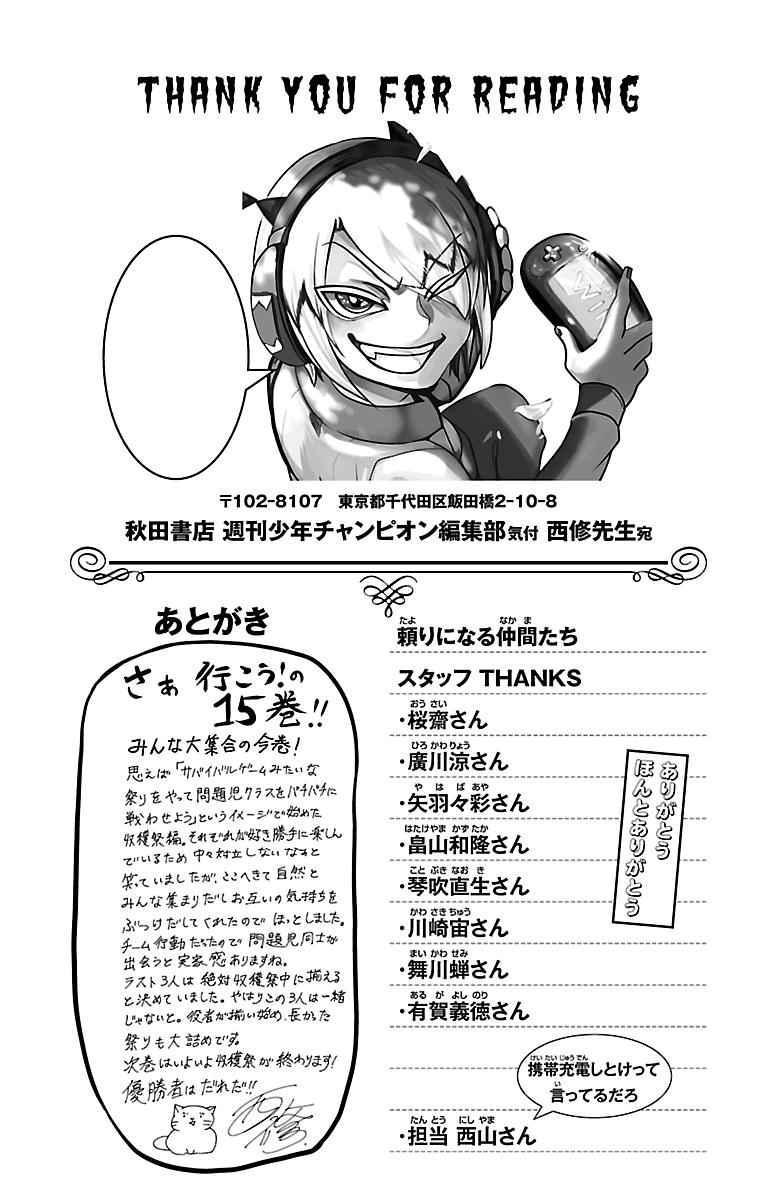 THANK YOU FOR READING
Win
〒102-8107　東京都千代田区飯田橋2-10-8
秋田書店 週刊少年チャンピオン編集部気付 西修先生宛
あとがき
さぁ 行こう!の
15巻!!
みんな大集合の今巻!
思えば「サバイバルゲームみたいな
祭りをやって問題児クラスをバチバチに
戦わせよう」というイメージで始めた
収穫祭編。それぞれが好き勝手に楽しん
でいるため 中々対立しないなぁと
笑っていましたが、ここへきて 自然と
みんな集まりだしお互いの気持ちを
ぶつけだしてくれたので ほっとしました。
チーム行動だったので 問題児同士が
出会うと実家感ありますね。
ラスト3人は 絶対収穫祭中に揃える
と決めていました。やはりこの3人は一緒
じゃないと。役者が揃い始め、長かった
祭りも大詰めです。
次巻はいよいよ収穫祭が終わります!
優勝者はだれだ!!
西修
頼りになる仲間たち
スタッフ THANKS
・桜齋さん
・廣川涼さん
・矢羽々彩さん
・畠山和隆さん
・琴吹直生さん
・川崎宙さん
・舞川蝉さん
・有賀義徳さん
ありがとう
ほんとありがとう
携帯充電しとけって
言ってるだろ
・担当 西山さん